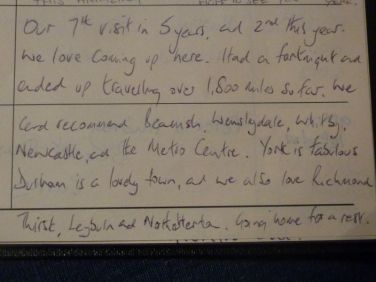 Our 7th visit in 5 years, and 2nd this year.
We love coming up here. Had a fortnight and
ended up travelling over 1,800 miles so far. We
can recommend Beamish, Wensleydale, Whitby,
Newcastle, and the Metro Centre. York is fabulous
Durham is a lovely town, and we also love Richmond
Thirsk, Leyburn and Northallerton. Going home for a rest.